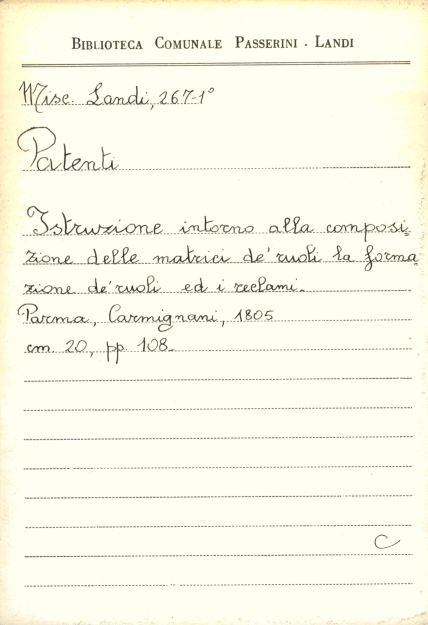 BIBLIOTECA COMUNALE PASSERINI - LANDI
Misc. Landi, 267-1°
Patenti
Istruzione intorno alla composi-
zione delle matrici de' ruoli la forma
zione de' ruoli ed i reclami.
Parma, Carmignani, 1805
cm. 20, pp. 108.
C